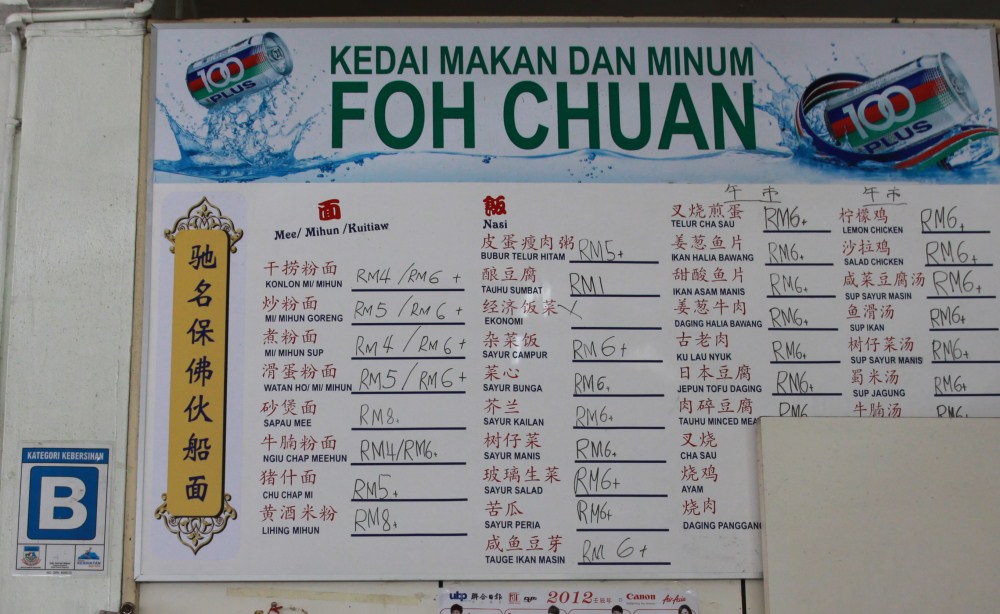 100
PLUS
KEDAI MAKAN DAN MINUM
FOH CHUAN
100
PLUS
驰名保佛伏船面
面
Mee/ Mihun /Kuitiaw
干捞粉面
KONLON MI/ MIHUN
RM4/RM6 +
炒粉面
MI/ MIHUN GORENG
RM5/RM6 +
煮粉面
MI/ MIHUN SUP
RM4/RM6+
滑蛋粉面
WATAN HO/ MI/ MIHUN
RM5/RM6+
砂煲面
SAPAU MEE
RM8+
牛腩粉面
NGIU CHAP MEEHUN
RM4/RM6+
猪什面
CHU CHAP MI
RM5+
黄酒米粉
LIHING MIHUN
RM8+
飯
Nasi
皮蛋瘦肉粥
BUBUR TELUR HITAM
RM5+
酿豆腐
TAUHU SUMBAT
RM1
经济饭菜 X
EKONOMI
杂菜饭
SAYUR CAMPUR
RM6+
菜心
SAYUR BUNGA
RM6+
芥兰
SAYUR KAILAN
RM6+
树仔菜
SAYUR MANIS
RM6+
玻璃生菜
SAYUR SALAD
RM6+
苦瓜
SAYUR PERIA
RM6+
咸鱼豆芽
TAUGE IKAN MASIN
RM 6+
午市
叉烧煎蛋
TELUR CHA SAU
RM6+
姜葱鱼片
IKAN HALIA BAWANG
RM6+
甜酸鱼片
IKAN ASAM MANIS
RM6+
姜葱牛肉
DAGING HALIA BAWANG
RM6+
古老肉
KU LAU NYUK
RM6+
日本豆腐
JEPUN TOFU DAGING
RM6+
肉碎豆腐
TAUHU MINCED MEA
RM6
叉烧
CHA SAU
烧鸡
AYAM
烧肉
DAGING PANGGANG
午市
柠檬鸡
LEMON CHICKEN
RM6+
沙拉鸡
SALAD CHICKEN
RM6+
咸菜豆腐汤
SUP SAYUR MASIN
RM6+
鱼滑汤
SUP IKAN
RM6+
树仔菜汤
SUP SAYUR MANIS
RM6+
蜀米汤
SUP JAGUNG
RM6+
牛腩汤
RM6+
KATEGORI KEBERSIHAN
B
ubp 聯合日报
2012
Canon
AirAsia